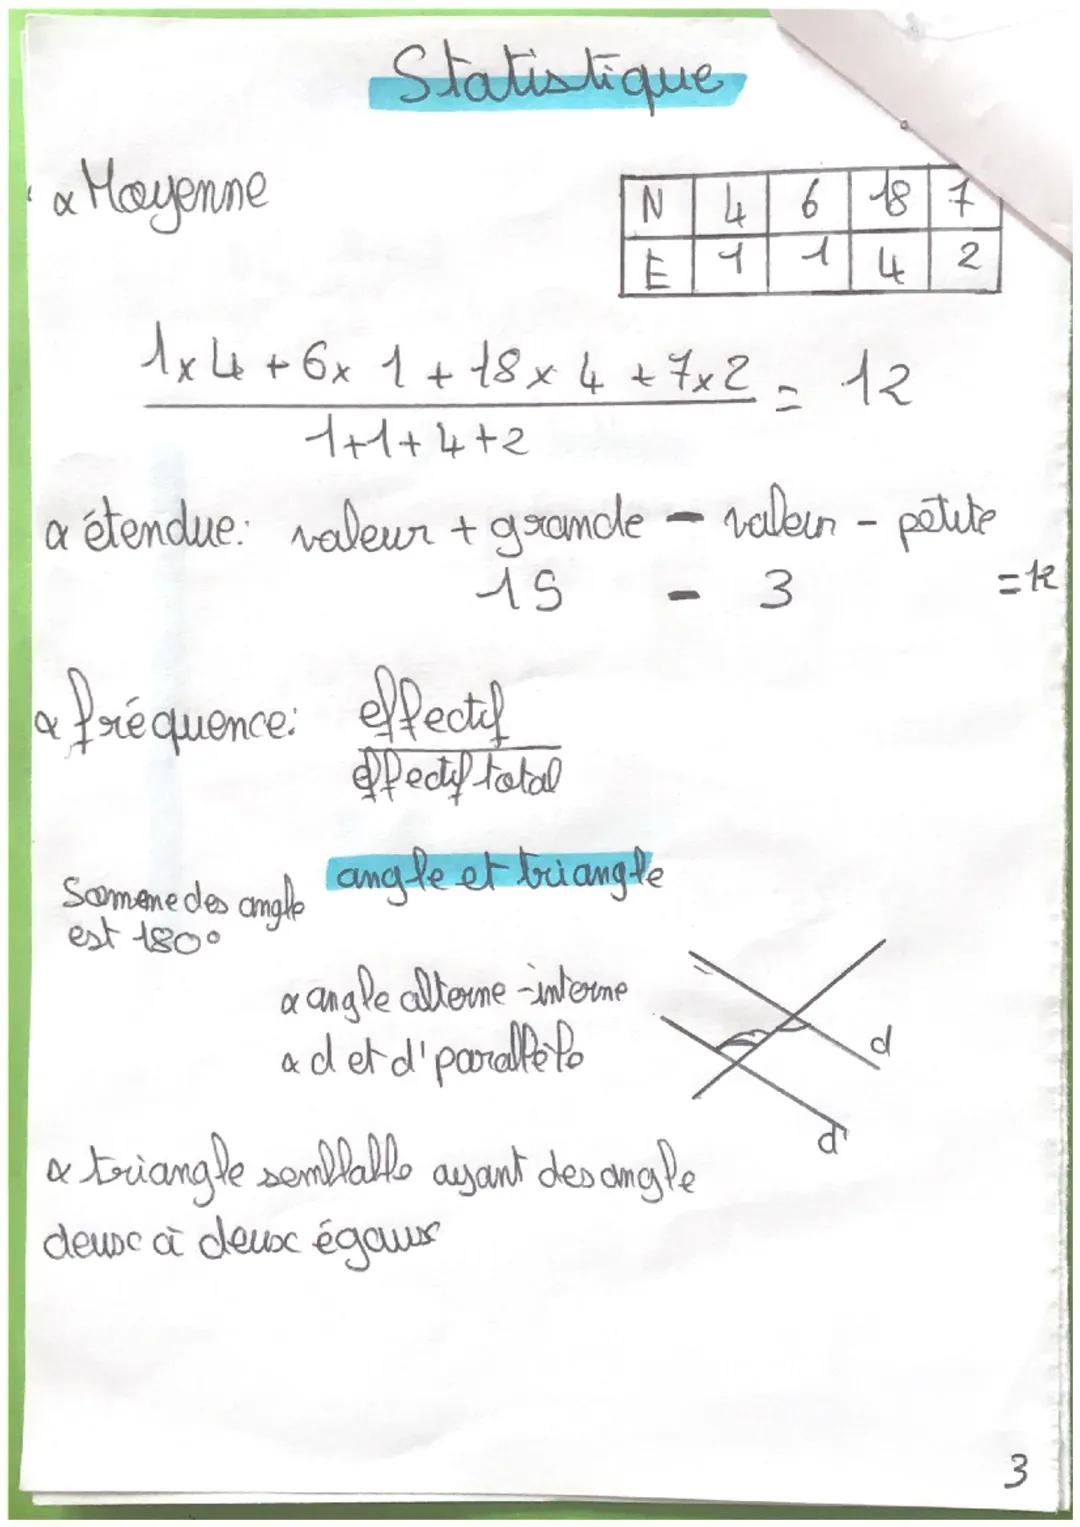 Statistique
× Moyenne
N 4 6 18 7
E 1 1 4 2
1x4 + 6x 1 + 18 x 4 + 7x2 = 12
1+1+4+2
× étendue: valeur + grande - valeur - petite
15 - 3 = 12
× fréquence: effectif
effectif total
angle et triangle
Somme des angle
est 180°
× angle alterne-interne
× d et d' parallèle
d
d'
× triangle semblable ayant des angle
deux à deux égaux
3